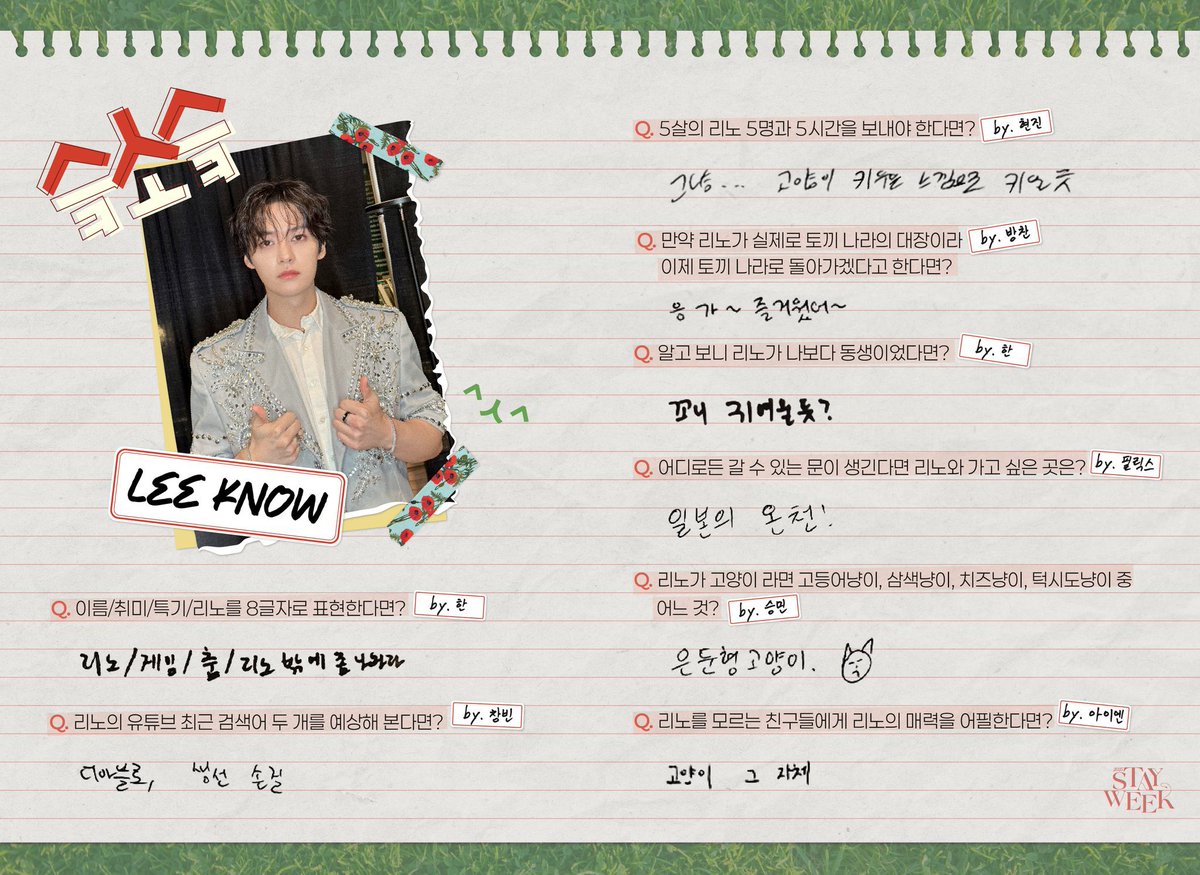 LEE KNOW
Q. 이름/취미/특기/리노를 8글자로 표현한다면? by. 한
리노/게임/춤/리노 밖에 좀 나와라
Q. 리노의 유튜브 최근 검색어 두 개를 예상해 본다면? by. 창빈
디아블로, 생선 손질
Q. 5살의 리노 5명과 5시간을 보내야 한다면? by. 현진
그냥... 고양이 키우는 느낌으로 키울 듯
Q. 만약 리노가 실제로 토끼 나라의 대장이라 by. 방찬
이제 토끼 나라로 돌아가겠다고 한다면?
응 가~ 즐거웠어~
Q. 알고 보니 리노가 나보다 동생이었다면? by. 한
꼬니 귀여울듯?
Q. 어디로든 갈 수 있는 문이 생긴다면 리노와 가고 싶은 곳은? by. 필릭스
일본의 온천!
Q. 리노가 고양이 라면 고등어냥이, 삼색냥이, 치즈냥이, 턱시도냥이 중
어느 것? by. 승민
은둔형 고양이.
Q. 리노를 모르는 친구들에게 리노의 매력을 어필한다면? by. 아이엔
고양이 그 자체
STAY
WEEK